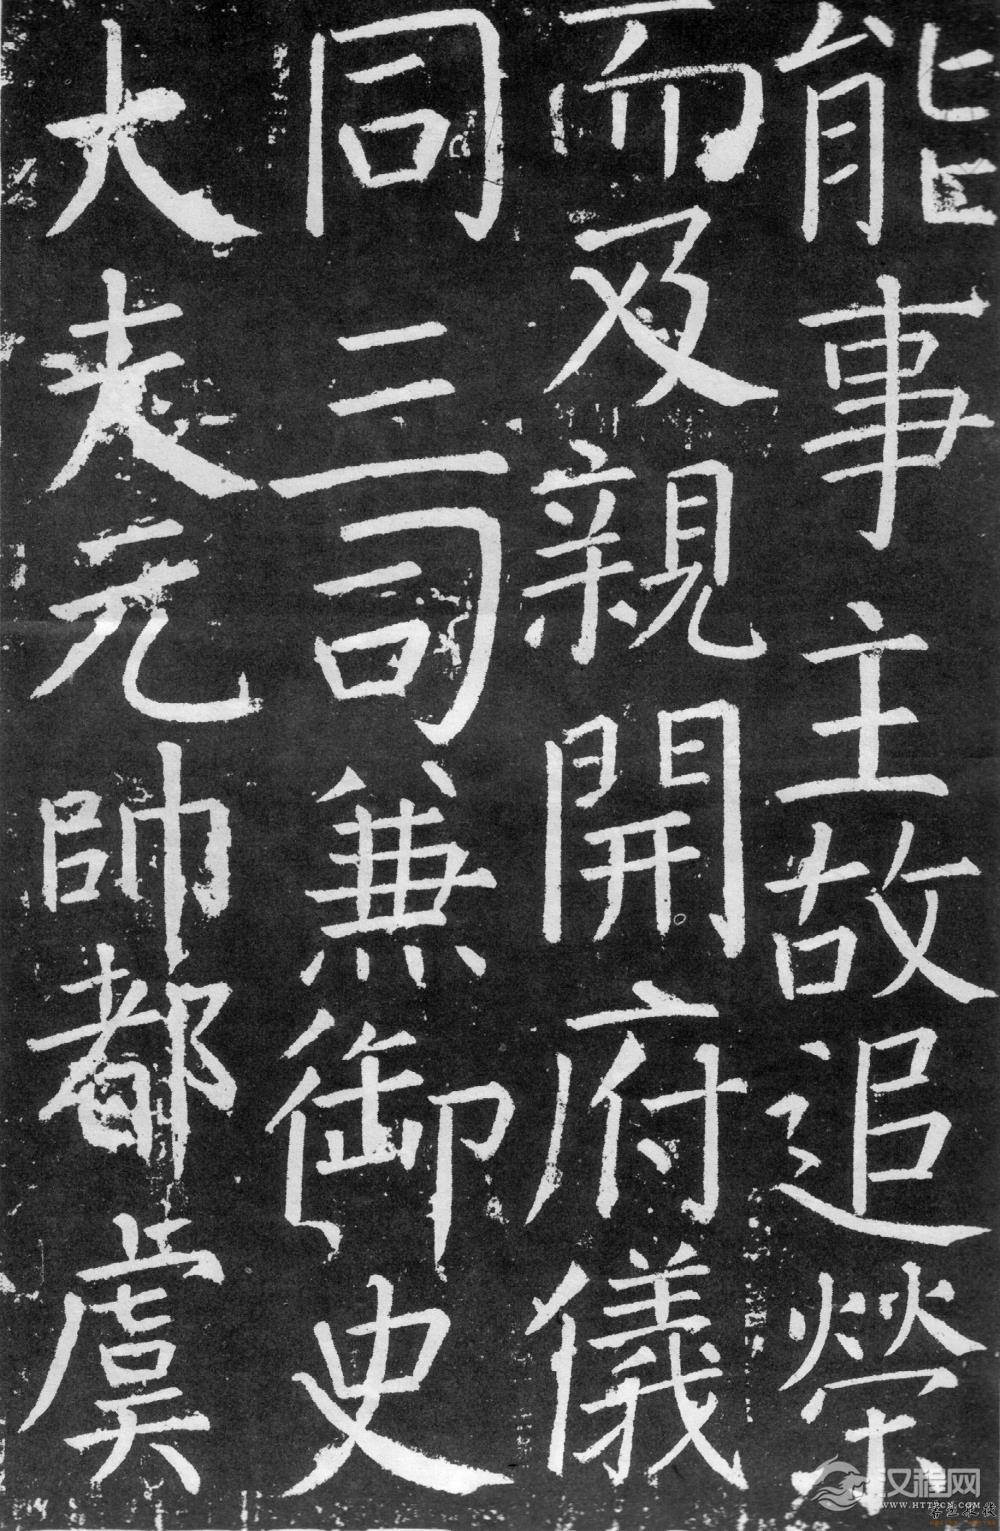 能事主故追榮
而及親開府儀
同三司兼御史
大夫元帥都虞
汉程网
WWW.HTTPCN.COM